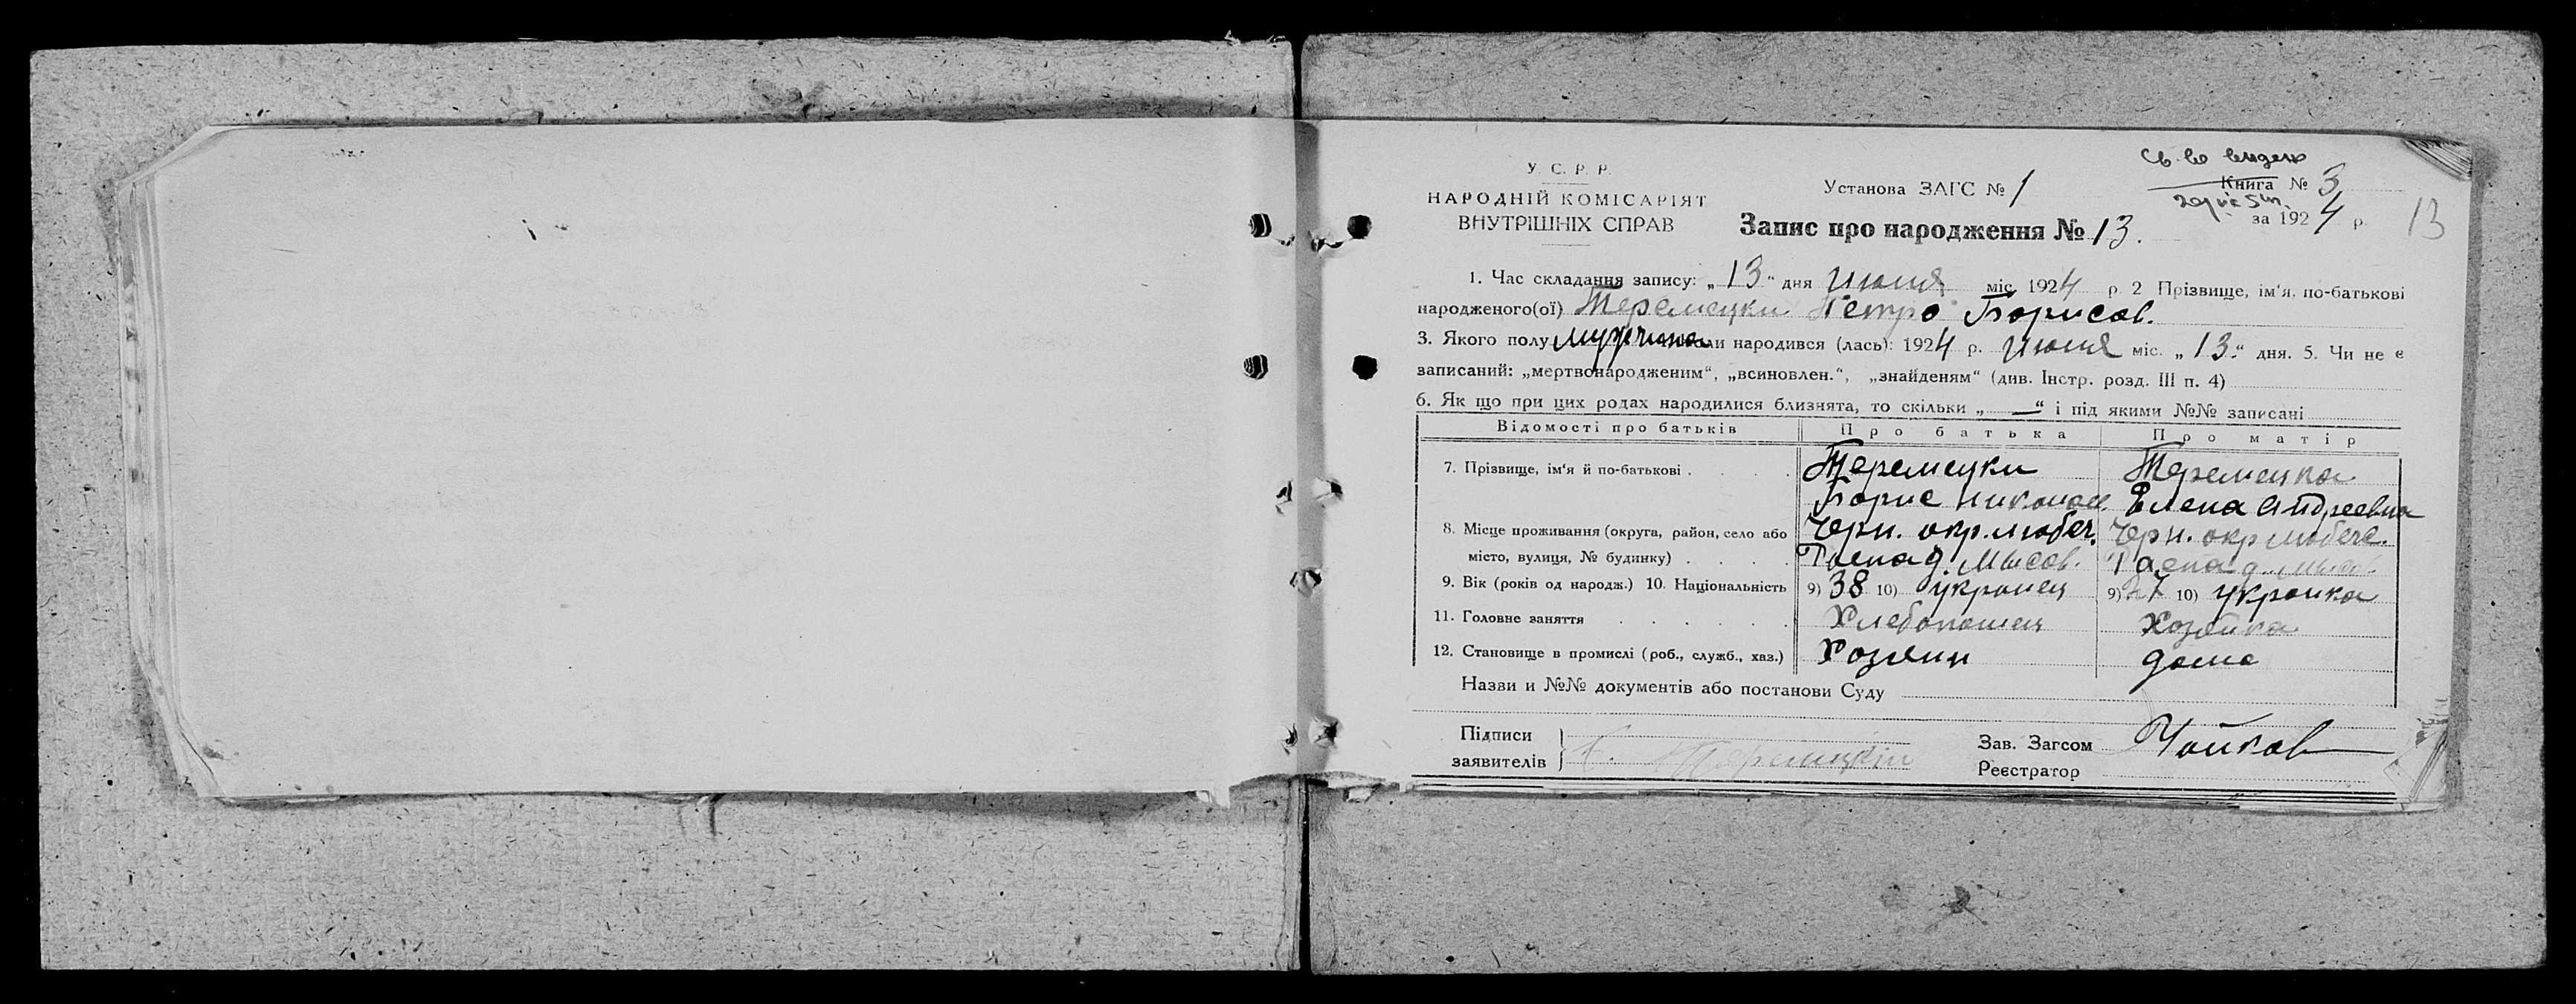 У. С. Р. Р.
НАРОДНІЙ КОМІСАРІЯТ
ВНУТРІШНІХ СПРАВ
Установа ЗАГС № 1
Св-во выдано
Книга № 3
за 1924 р.
13
Запис про народження № 13.
1. Час складання запису: „13“ дня Июля міс. 1924 р. 2 Прізвище, ім'я, по-батькові
народженого(ої) Теремецки Петро Борисов.
3. Якого полу мужчина ли народився (лась): 1924 р. Июля міс. „13“ дня. 5. Чи не є
записаний: „мертвонародженим“, „всиновлен.“, „знайденям“ (див. Інстр. розд. III п. 4)
6. Як що при цих родах народилися близнята, то скільки „—“ і під якими №№ записані
Відомості про батьків Про батька Про матір
7. Прізвище, ім'я й по-батькові . . . . Теремецки Теремецка
Борис Елена Андреевна
8. Місце проживання (округа, район, село або Черн. окр. Любеч. Черн. окр Любече.
місто, вулиця, № будинку) . . . .
9. Вік (років од народж.) 10. Національність 9) 38 10) украинец 9) 27 10) украинка
11. Головне заняття . . . . . . Хлебопашец Хозяйка
12. Становище в промислі (роб., служб., хаз.) Хозяин дома
Назви и №№ документів або постанови Суду
Підписи
заявителів } Теремецкий
Зав. Загсом Чайков
Реєстратор